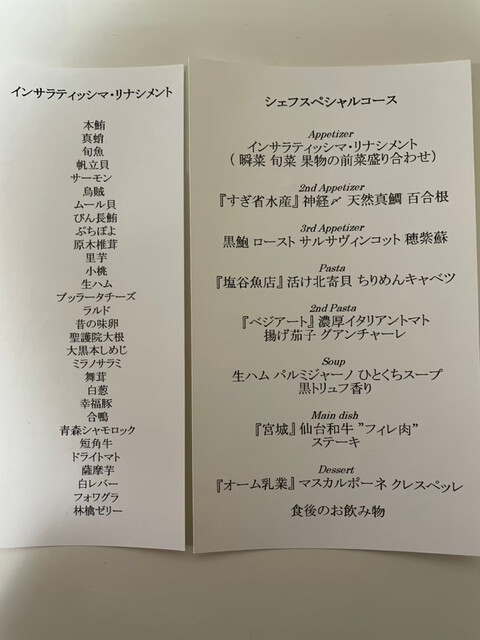 インサラティッシマ・リナシメント
本鮪
真蛸
旬魚
帆立貝
サーモン
烏賊
ムール貝
びん長鮪
ぷちぽよ
原木椎茸
里芋
小桃
生ハム
ブッラータチーズ
ラルド
昔の味卵
聖護院大根
大黒本しめじ
ミラノサラミ
舞茸
白葱
幸福豚
合鴨
青森シャモロック
短角牛
ドライトマト
薩摩芋
白レバー
フォワグラ
林檎ゼリー
シェフスペシャルコース
Appetizer
インサラティッシマ・リナシメント
( 瞬菜 旬菜 果物の前菜盛り合わせ)
2nd Appetizer
『すぎ省水産』神経〆 天然真鯛 百合根
3rd Appetizer
黒鮑 ロースト サルサヴィンコット 穂紫蘇
Pasta
『塩谷魚店』活け北寄貝 ちりめんキャベツ
2nd Pasta
『ベジアート』濃厚イタリアントマト
揚げ茄子 グアンチャーレ
Soup
生ハム パルミジャーノ ひとくちスープ
黒トリュフ香り
Main dish
『宮城』仙台和牛 ”フィレ肉”
ステーキ
Dessert
『オーム乳業』マスカルポーネ クレスペッレ
食後のお飲み物